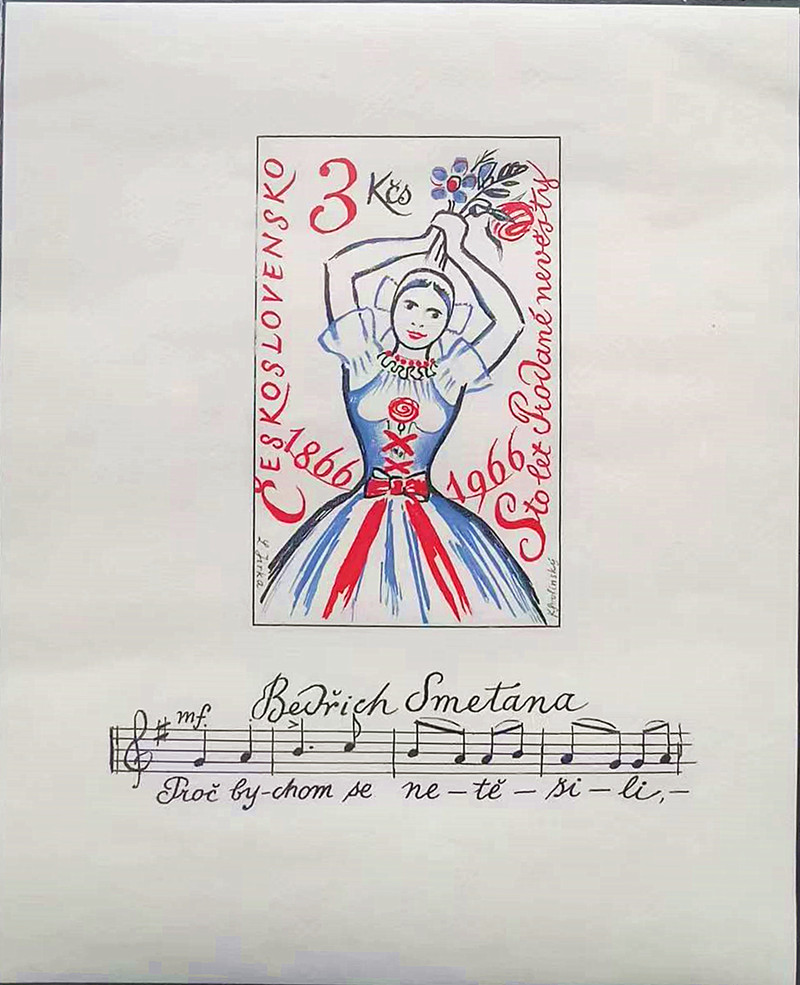 ČESKOSLOVENSKO
3 Kčs
1866
1966
Sto let Prodané nevěsty
Bedřich Smetana
mf.
Proč by-chom se ne-tě-ši-li,-